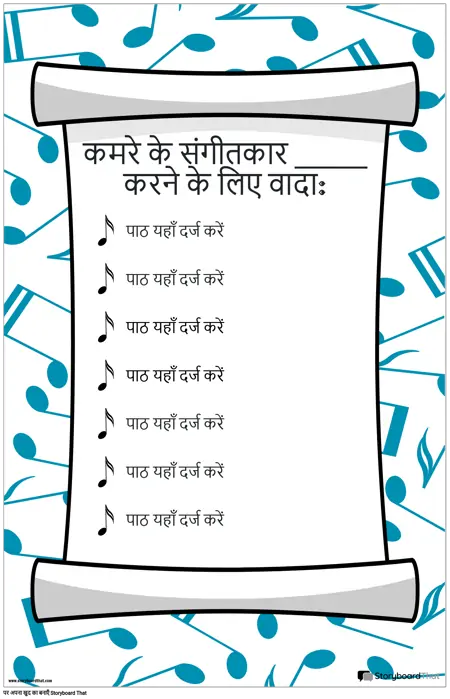 कमरे के संगीतकार _____
करने के लिए वादा:
पाठ यहाँ दर्ज करें
पाठ यहाँ दर्ज करें
पाठ यहाँ दर्ज करें
पाठ यहाँ दर्ज करें
पाठ यहाँ दर्ज करें
पाठ यहाँ दर्ज करें
पाठ यहाँ दर्ज करें
www.storyboardthat.com
StoryboardThat
पर अपना खुद का बनाएँ Storyboard That